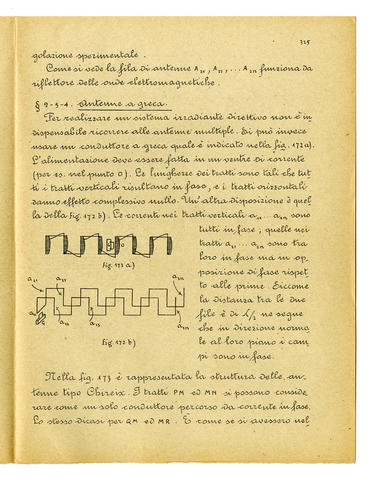 325
golazione sperimentale.
Come si vede la fila di antenne A₂₁, A₂₂, ... A₂ₙ funziona da
riflettore delle onde elettromagnetiche.
§ 2-3-4. Antenne a greca.
Per realizzare un sistema irradiante direttivo non è in
dispensabile ricorrere alle antenne multiple. Si può invece
usare un conduttore a greca quale è indicato nella fig. 172a).
L'alimentazione deve essere fatta in un ventre di corrente
(per es. nel punto O). Le lunghezze dei tratti sono tali che tut
ti i tratti verticali risultano in fase, e i tratti orizzontali
danno effetto complessivo nullo. Un'altra disposizione è quel
la della fig. 172 b). Le correnti nei tratti verticali a₂₁... a₂ₙ sono
tutti in fase; quelle nei
tratti a₁₁... a₁ₙ sono tra
loro in fase ma in op,
posizione di fase rispet
to alle prime. Siccome
la distanza tra le due
file è di λ/2 ne segue
che in direzione norma
le al loro piano i cam
pi sono in fase.
fig. 172 a)
a₂₁
a₂ₙ
a₁₁
a₁ₙ
fig. 172 b)
Nella fig. 173 è rappresentata la struttura delle an,
tenne tipo Chireix. I tratti PM ed MN si possono conside
rare come un solo conduttore percorso da corrente in fase.
Lo stesso dicasi per QM ed MR. È come se si avessero nel